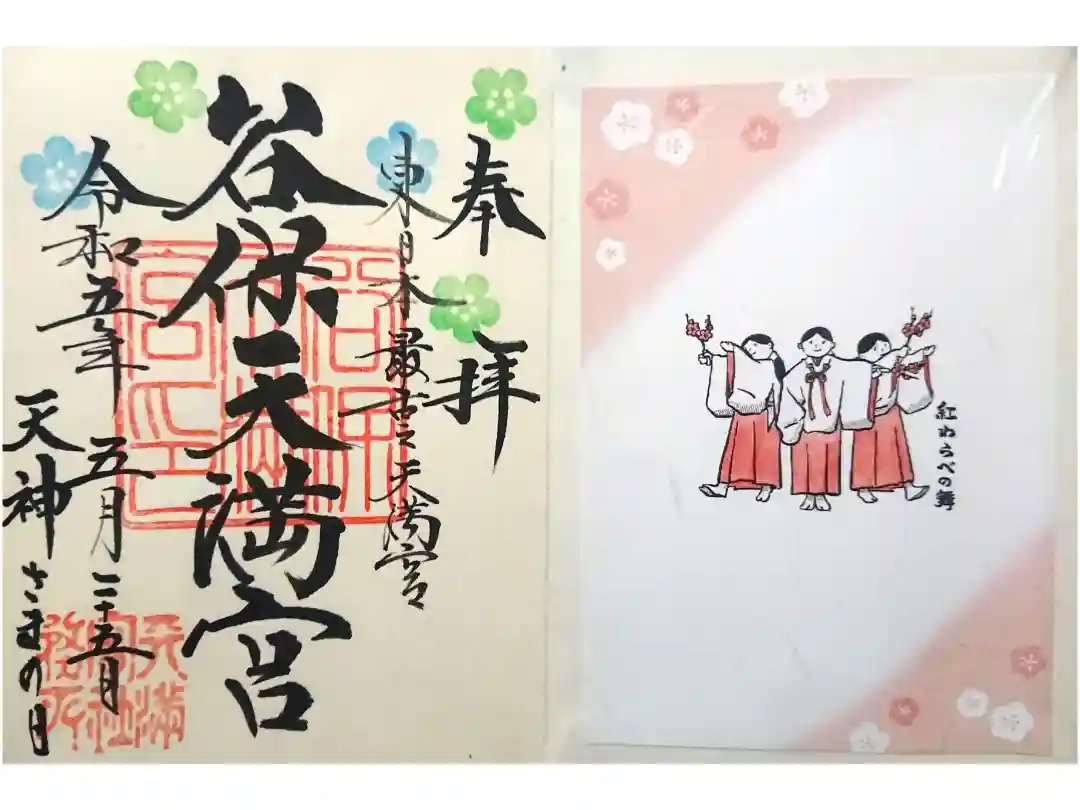 奉拝
東日本最古之天満宮
谷保天満宮
令和五年五月二十五日
天神さまの日
谷保天満宮之印
天満宮社務所
紅わらべの舞